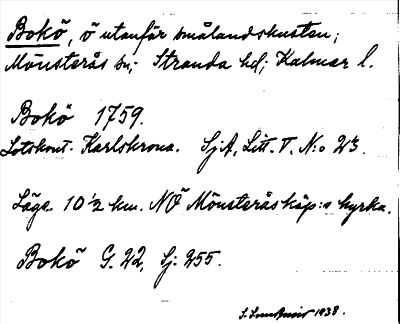 Bokö, ö utanför smålandskusten;
Mönsterås sn; Stranda hd; Kalmar l.
Bokö 1759.
Lotskont. Karlskrona. SjA, Litt. T. N:o 23.
Läge 10 1/2 km. NÖ Mönsterås köp:s kyrka.
Bokö G. 22, Sj: 255.
1938.